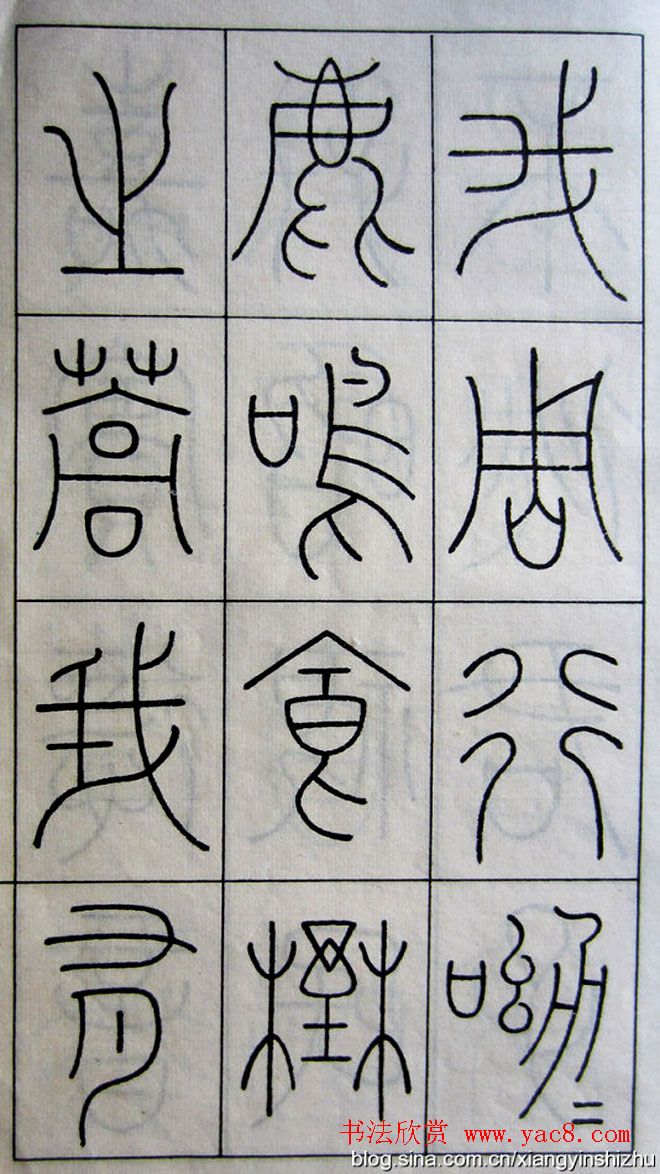 我周行呦=
鹿鳴食野
之蒿我有
书法欣赏 www.yac8.com
blog.sina.com.cn/xiangyinshizhu